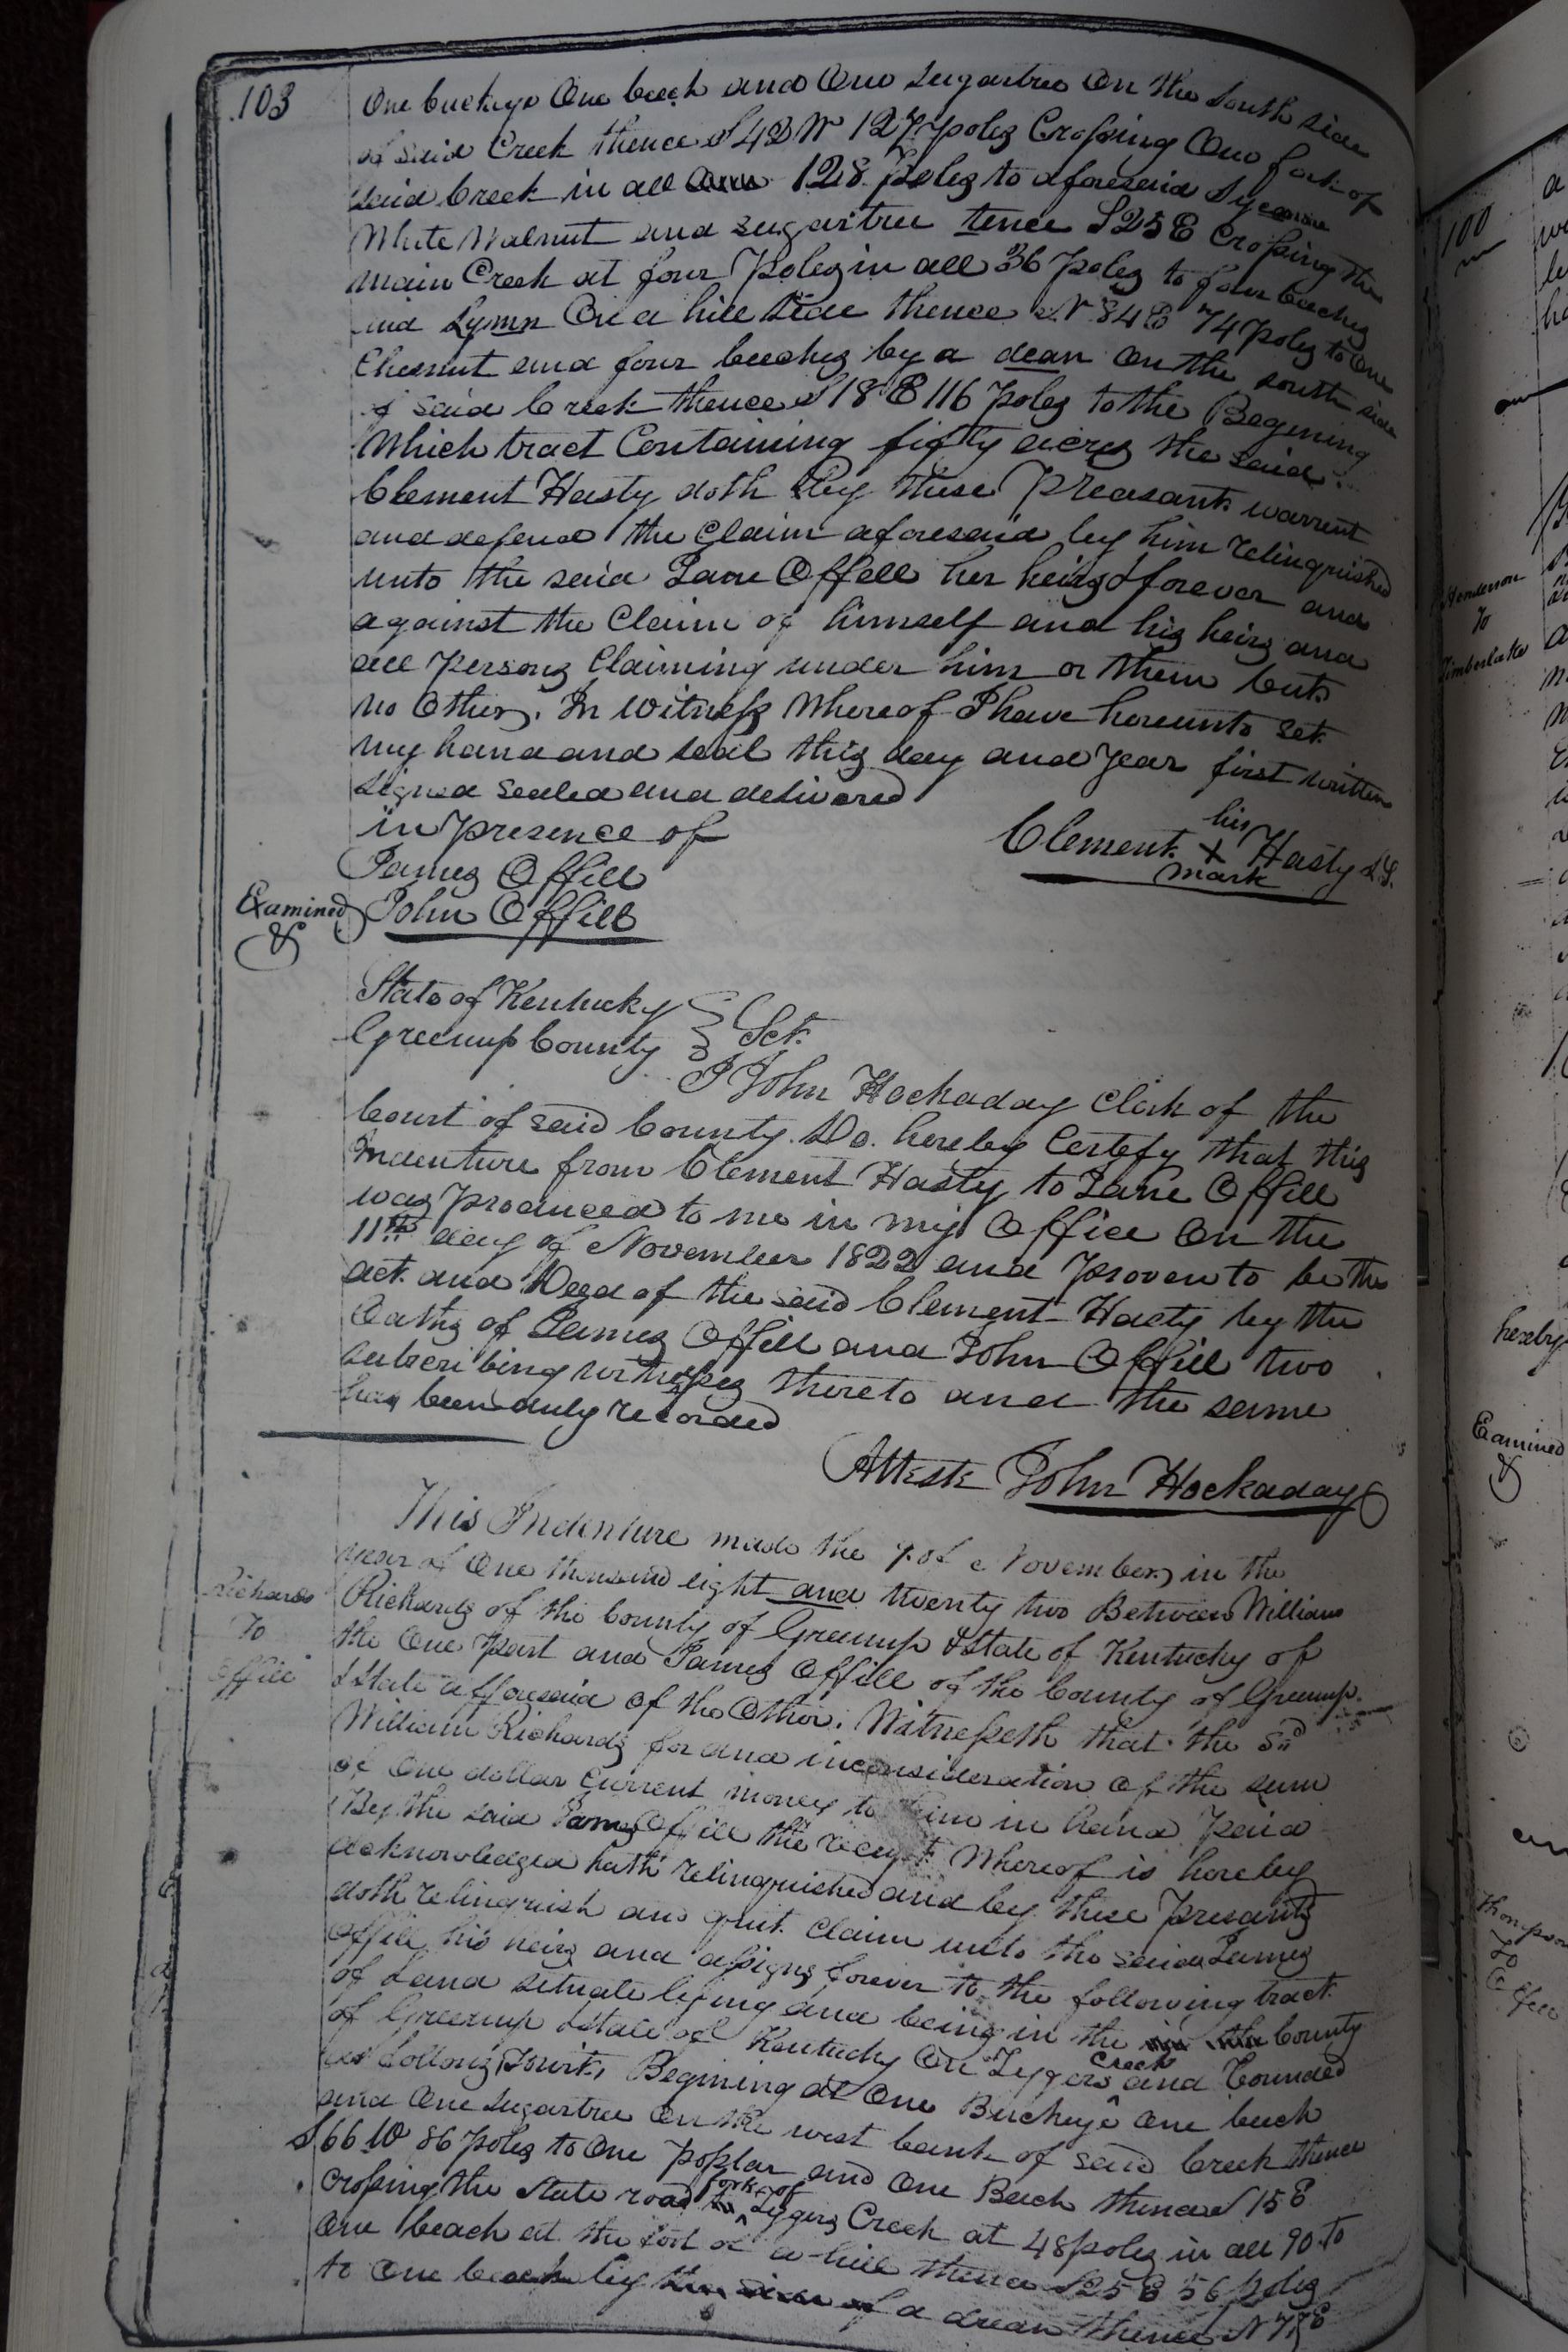 103
One buckeye One beech and One Sugartree On the South side
of said Creek thence S 42 W 127 poles Crossing One fork of
said Creek in all 128 Poles to aforesaid Sycamore
White Walnut and sugartree tence S 25 E Crossing the
main Creek at four Poles in all 36 poles to four beeches
and Lymn On a hill side thence N 84 E 74 poles to One
Chesnut and four beeches by a dean On the south side
of said Creek thence S 18 E 116 poles to the Begining
Which tract Containing fifty acres the said
Clement Hasty doth By these Preasants warrent
and defend the Claim aforesaid by him relinquished
unto the said Jane Offill her heirs forever and
against the Claim of himself and his heirs and
all Persons Claiming under him or them but
no Other. In Witness Whereof I have hereunto set
my hand and seal this day and Year first written
Signed sealed and delivered
in presence of
Clement his X mark Hasty L.S.
James Offill
Examined
John Offill
State of Kentucky
Greenup County } Sct.
I John Hockaday Clerk of the
Court of said County Do hereby Certefy that this
Indenture from Clement Hasty to Jane Offill
was produced to me in my Office On the
11th day of November 1822 and Proven to be the
act and Deed of the said Clement Hasty by the
Oaths of James Offill and John Offill two
subscribing witnesses thereto and the same
has been duly recorded
Atteste John Hockaday
This Indenture made the 7 of November in the
year of One thousand eight and twenty two Between William
Richards
To
Offill
Richards of the County of Greenup & State of Kentucky of
the One Part and James Offill of the County of Greenup
& State afforesaid of the Other. Witnesseth that the Sd
William Richards for and inconsideration of the sum
of One dollar Current money to him in hand Paid
By the said James Offill the recept Whereof is hereby
acknowledged hath relinquished and by these Presants
doth relinquish and quit Claim unto the said James
Offill his heirs and assigns forever to the following tract
of Land situate lying and being in the County
of Greenup & State of Kentucky On Tygers Creek and bounded
as follows Towit, Begining at One Buckeye One beech
and One Sugartree On the west bank of said Creek thence
S 66 W 86 poles to One Poplar and One Beech thence S 15 E
Crossing the State road fork of Tygers Creek at 48 poles in all 90 to
One beach at the foot of a hill thence S 25 E 56 poles
to One beech by of a drean thence N 78 E
100
Henderson
To
Timberlake
hereby
Examined
Thompson
To
Offill